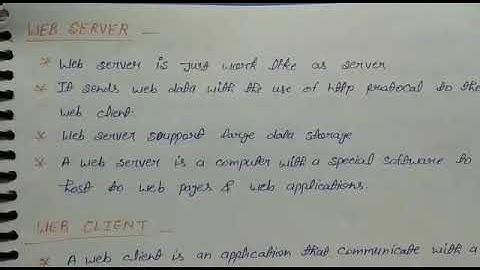 WEB SERVER _
* Web server is just work like as server
* It sends web data with the use of http protocol to the
web client.
* Web server soupport large data storage
* A web server is a computer with a special software to
host to web pages & web applications.
WEB CLIENT _
* A web client is an application that communicate with a